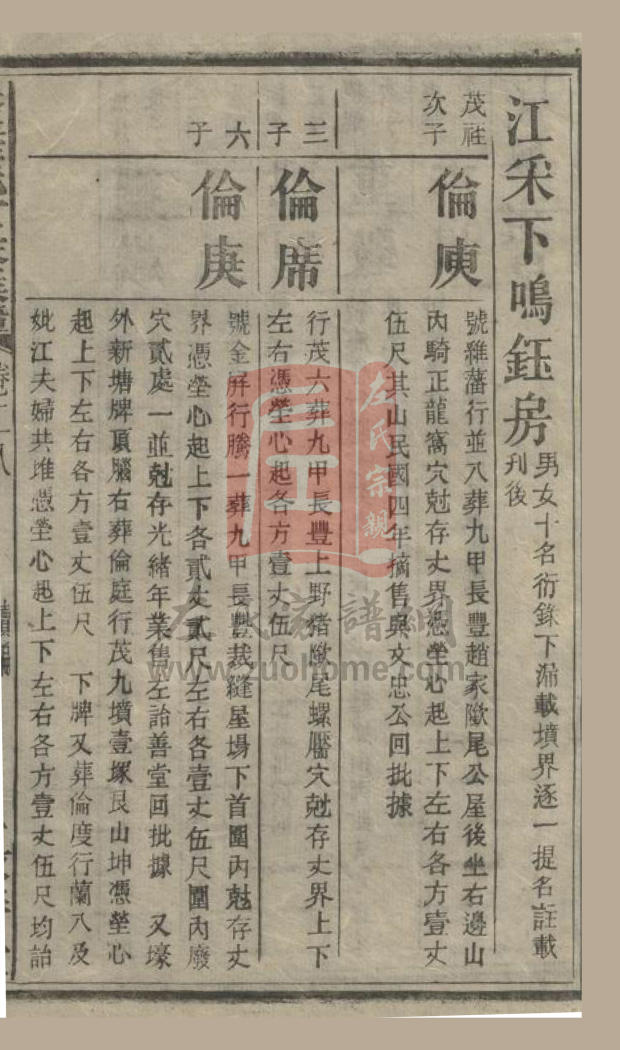 江采下鳴鈺房
男女十名衍錄下漏載墳界逐一提名註載
刋後
茂社
次子
倫庾
號維藩行並八葬九甲長豐趙家歐尾公屋後坐右邊山
內騎正龍窩穴尅存丈界憑塋心起上下左右各方壹丈
伍尺其山民國四年摘售與文忠公回批據
三
子
倫席
行茂六葬九甲長豐上野猪歐尾螺黶穴尅存丈界上下
左右憑塋心起各方壹丈伍尺
六
子
倫庚
號金屏行騰一葬九甲長豐裁縫屋場下首圍內尅存丈
界憑塋心起上下各貳丈貳尺左右各壹丈伍尺圍內廢
穴貳處一並尅存光緒年業售左詒善堂回批據 又壕
外新塘牌頂腦右葬倫庭行茂九墳壹塚艮山坤憑塋心
起上下左右各方壹丈伍尺 下牌又葬倫度行蘭八及
妣江夫婦共堆憑塋心起上下左右各方壹丈伍尺均詒
左氏宗親
左氏家譜網
www.zuohome.com